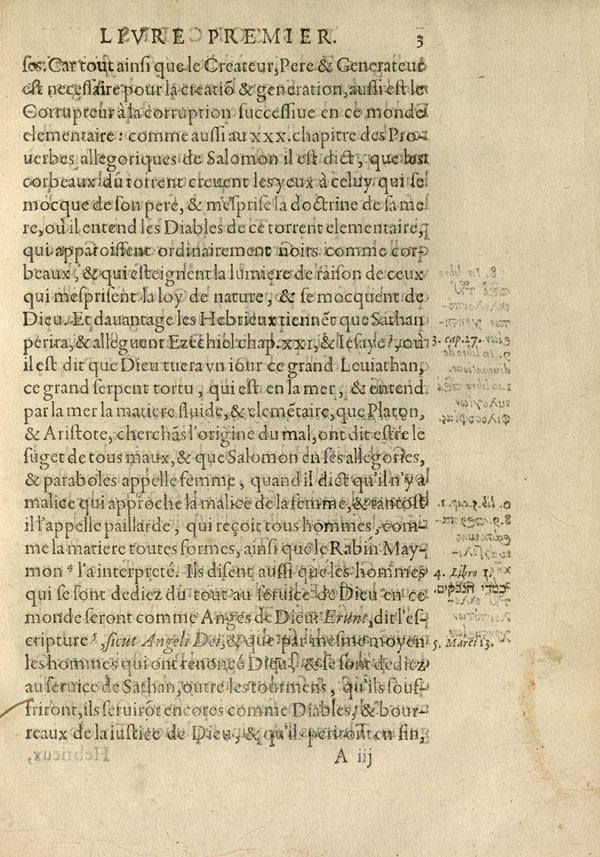 LIVRE PREMIER. 3
ses. Car tout ainsi que le Createur, Pere & Generateur
est necessaire pour la creatiõ & generation, aussi est le
Corrupteur à la corruption successiue en ce monde
elementaire : comme aussi au xxx. chapitre des Pro-
uerbes allegoriques de Salomon il est dict, que les
corbeaux du torrent creuent les yeux à celuy qui se
mocque de son pere, & mesprise la doctrine de sa me
re, où il entend les Diables de ce torrent elementaire,
qui apparoissent ordinairement noirs comme cor-
beaux, & qui esteignent la lumiere de raison de ceux
qui mesprisent la loy de nature, & se mocquent de
Dieu. Et dauantage les Hebrieux tiennẽt que Sathan
perira, & alleguent Ezechiel chap. xxx, & Iesaye ³, où
3. cap. 27.
il est dit que Dieu tuera vn iour ce grand Leuiathan,
ce grand serpent tortu, qui est en la mer, & entend
par la mer la matiere fluide, & elemẽtaire, que Platon,
& Aristote, cherchãs l'origine du mal, ont dit estre le
suget de tous maux, & que Salomon en ses allegories,
& paraboles appelle femme, quand il dict qu'il n'y a
malice qui approche la malice de la femme, & tantost
il l'appelle paillarde, qui reçoit tous hommes, com-
me la matiere toutes formes, ainsi que le Rabin May-
mon ⁴ l'a interpreté. Ils disent aussi que les hommes
4. Libro
qui se sont dediez du tout au seruice de Dieu en ce
monde seront comme Anges de Dieu Erunt, dit l'es-
cripture ⁵, sicut Angeli Dei, & que par mesme moyen
5. Marci 13.
les hommes qui ont renoncé Dieu, & se sont dediez
au seruice de Sathan, outre les tourmens, qu'ils souf-
friront, ils seruirõt encores comme Diables, & bour-
reaux de la iustice de Dieu, & qu'ils periront en fin,
A iij